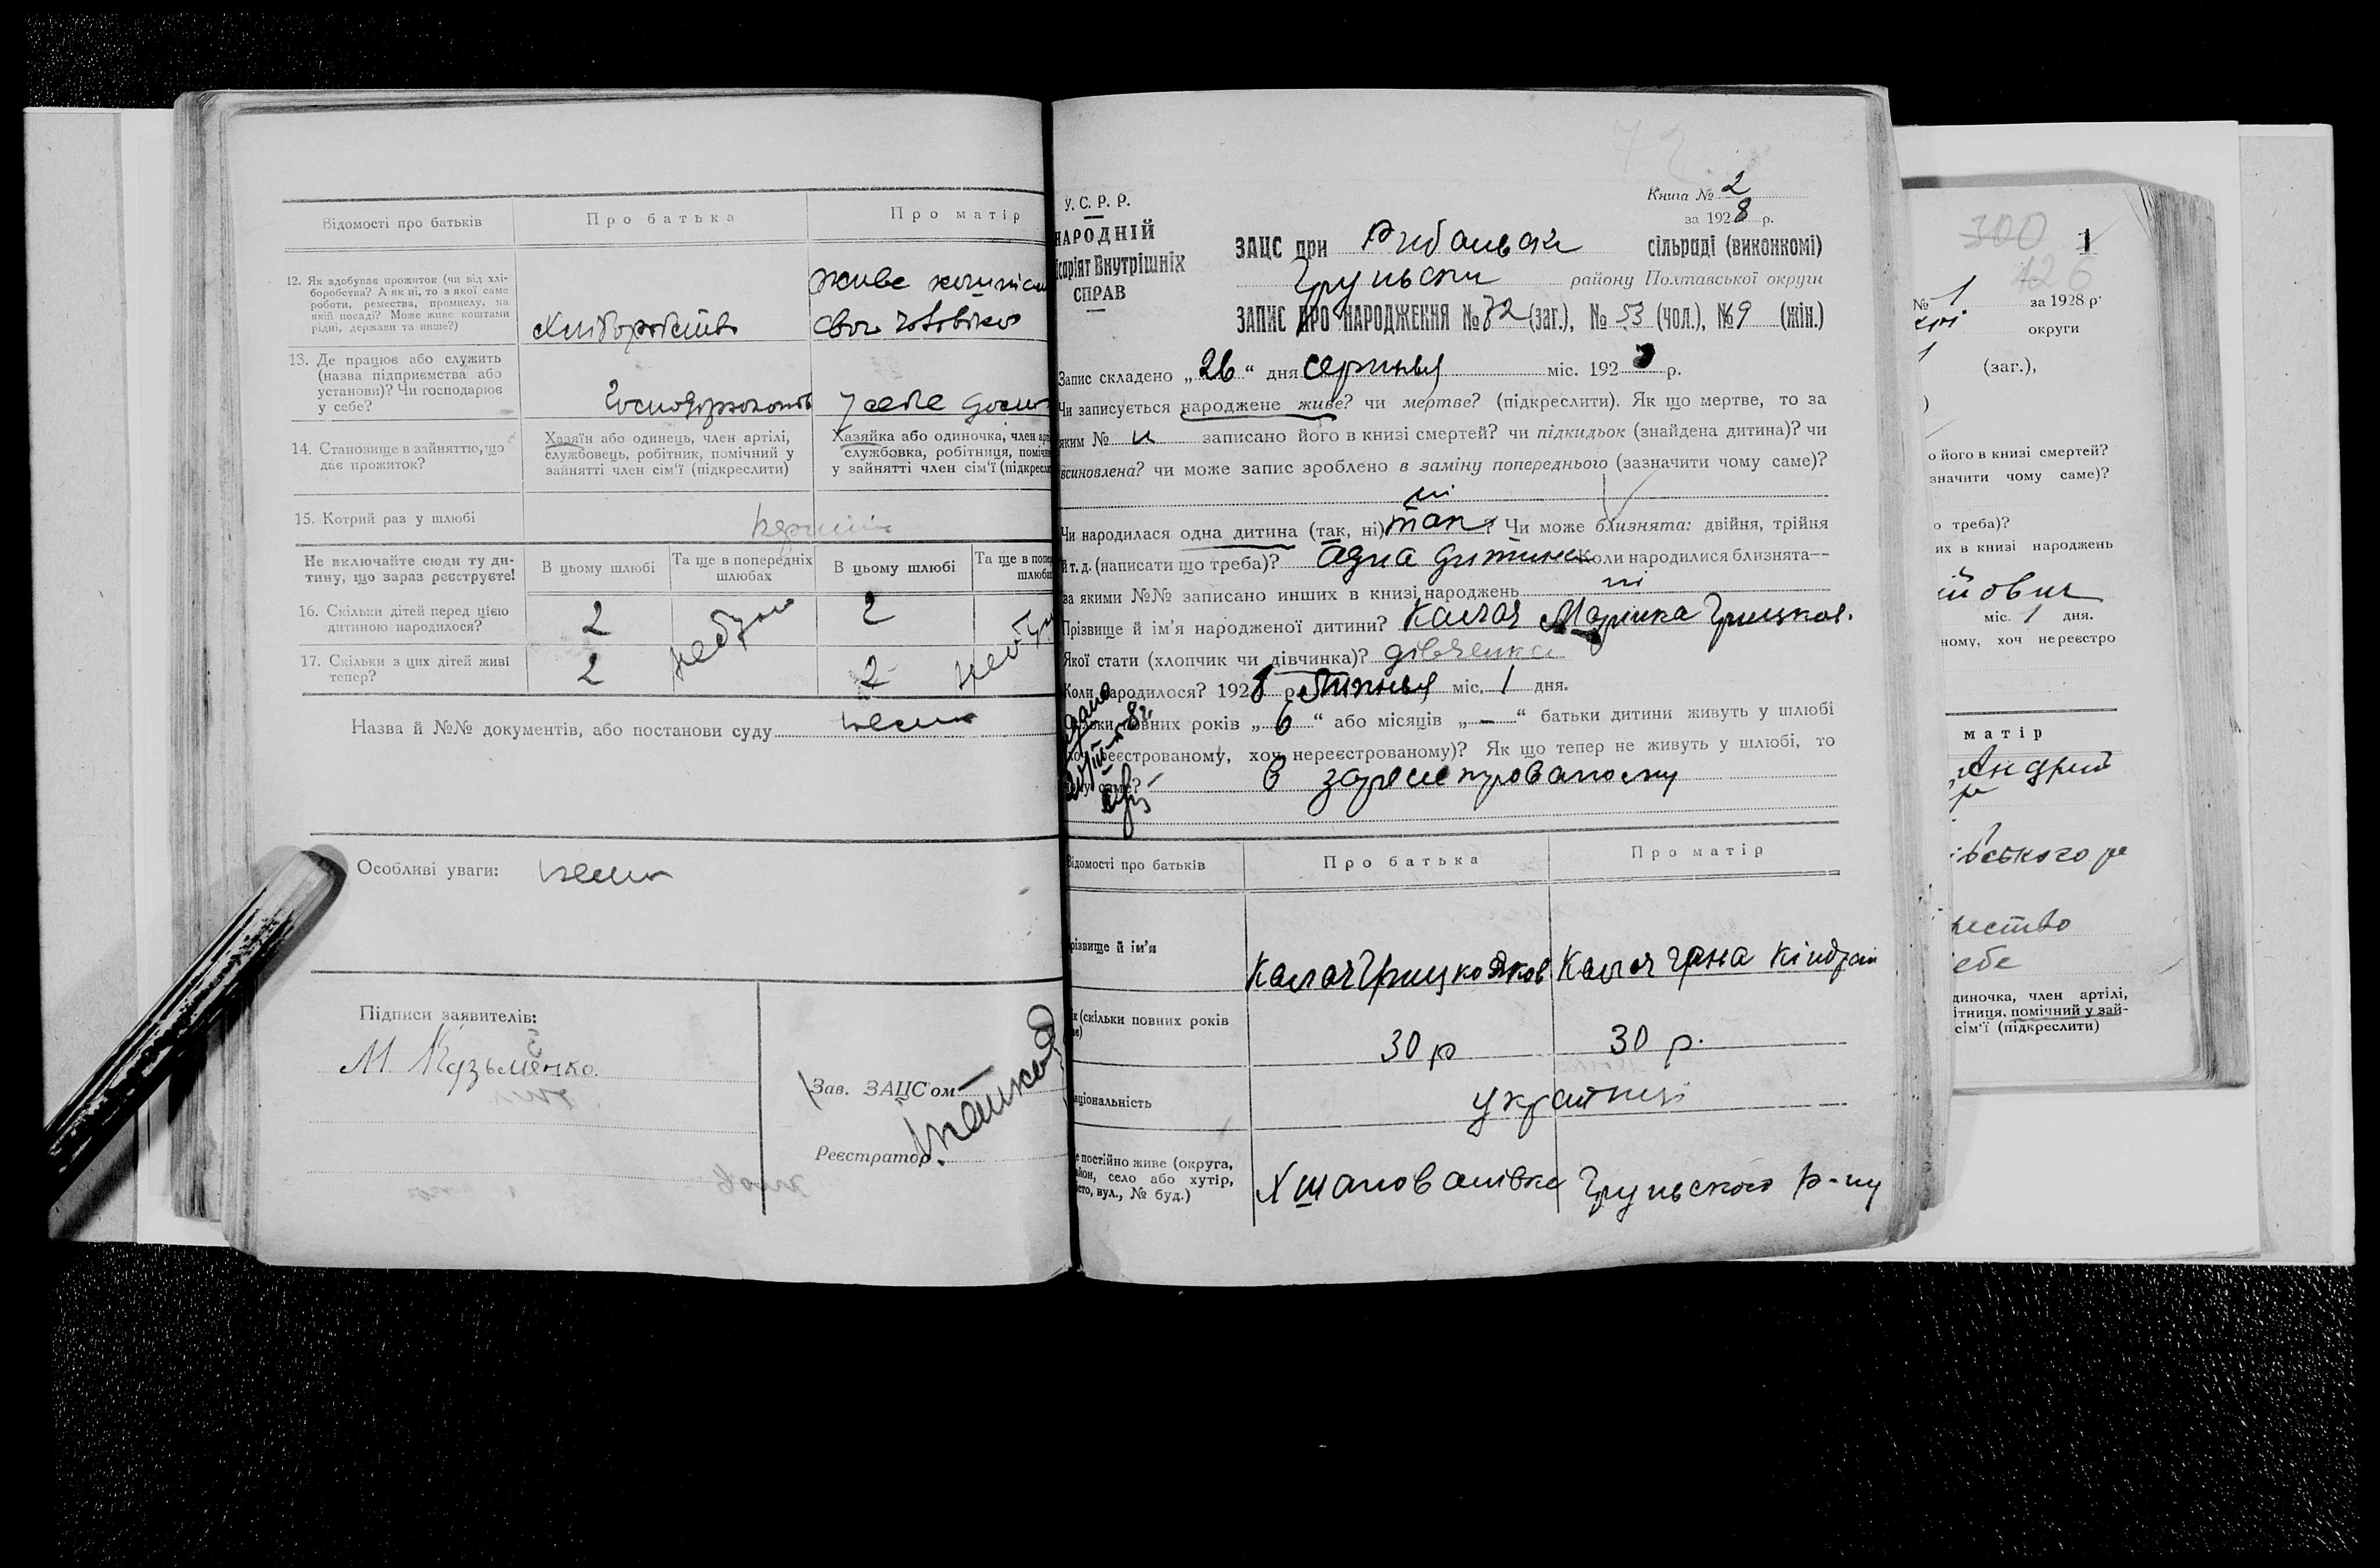 Відомості про батьків
Про батька
Про матір
12. Як здобуває прожиток (чи від хлі-
боробства? А як ні, то з якої саме
роботи, ремества, промислу, на
якій посаді? Може живе коштами
рідні, держави та инше?)
Хліборобство
живе коштом
свого чоловіка
13. Де працює або служить
(назва підприємства або
установи)? Чи господарює
у себе?
у себе
14. Становище в зайняттю, що
дає прожиток?
Хазяїн або одинець, член артілі,
службовець, робітник, помічний у
зайнятті член сім'ї (підкреслити)
Хазяйка або одиночка, член
службовка, робітниця,
у зайнятті член сім'ї
15. Котрий раз у шлюбі
перший
Не включайте сюди ту ди-
тину, що зараз реєструєте!
В цьому шлюбі
Та ще в попередніх
шлюбах
В цьому шлюбі
Та ще в
шлюбах
16. Скільки дітей перед цією
дитиною народилося?
2
2
17. Скільки з цих дітей живі
тепер?
2
2
Назва й №№ документів, або постанови суду
нема
Особливі уваги: нема
Підписи заявителів:
М Кузьменко.
Зав. ЗАЦС'ом
Реєстратор
У. С. Р. Р.
НАРОДНІЙ
Внутрішніх
СПРАВ
Книга № 2
за 1928 р.
ЗАЦС при сільраді (виконкомі)
Грунськ району Полтавської округи
ЗАПИС ПРО НАРОДЖЕННЯ № 72 (заг.), № 53 (чол.), № (жін.)
Запис складено „26“ дня серпня міс. 192 р.
Чи записується народжене живе? чи мертве? (підкреслити). Як що мертве, то за
яким № записано його в книзі смертей? чи підкидьок (знайдена дитина)? чи
всиновлена? чи може запис зроблено в заміну попереднього (зазначити чому саме)?
ні
Чи народилася одна дитина (так, ні) так? Чи може близнята: двійня, трійня
й т. д. (написати що треба)? одна дитина Коли народилися близнята—
за якими №№ записано инших в книзі народжень ні
Прізвище й ім'я народженої дитини? Калач Марінка Грицков.
Якої стати (хлопчик чи дівчинка)? дівченка
Коли народилося? 1928 р. міс. 1 дня.
повних років „6“ або місяців „—“ батьки дитини живуть у шлюбі
реєстрованому, хоч нереєстрованому)? Як що тепер не живуть у шлюбі, то
саме? В
Відомості про батьків
Про батька
Про матір
Прізвище й ім'я
Калач Грицко Яков
Калач Гана Кіндрат
(скільки повних років
30 р
30 р.
національність
українці
постійно живе (округа,
село або хутір,
вул., № буд.)
Х Шаповалівка Грунського р-ну
300
1
126
№ 1 за 1928 р.
округи
(заг.),
)
о його в книзі смертей?
значити чому саме)?
о треба)?
их в книзі народжень
йович
міс. 1 дня.
ному, хоч нереєстро
матір
вського р
себе
диночка, член артілі,
ітниця, помічний у зай-
сім'ї (підкреслити)